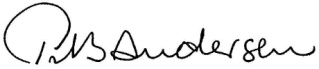 PB Andersen